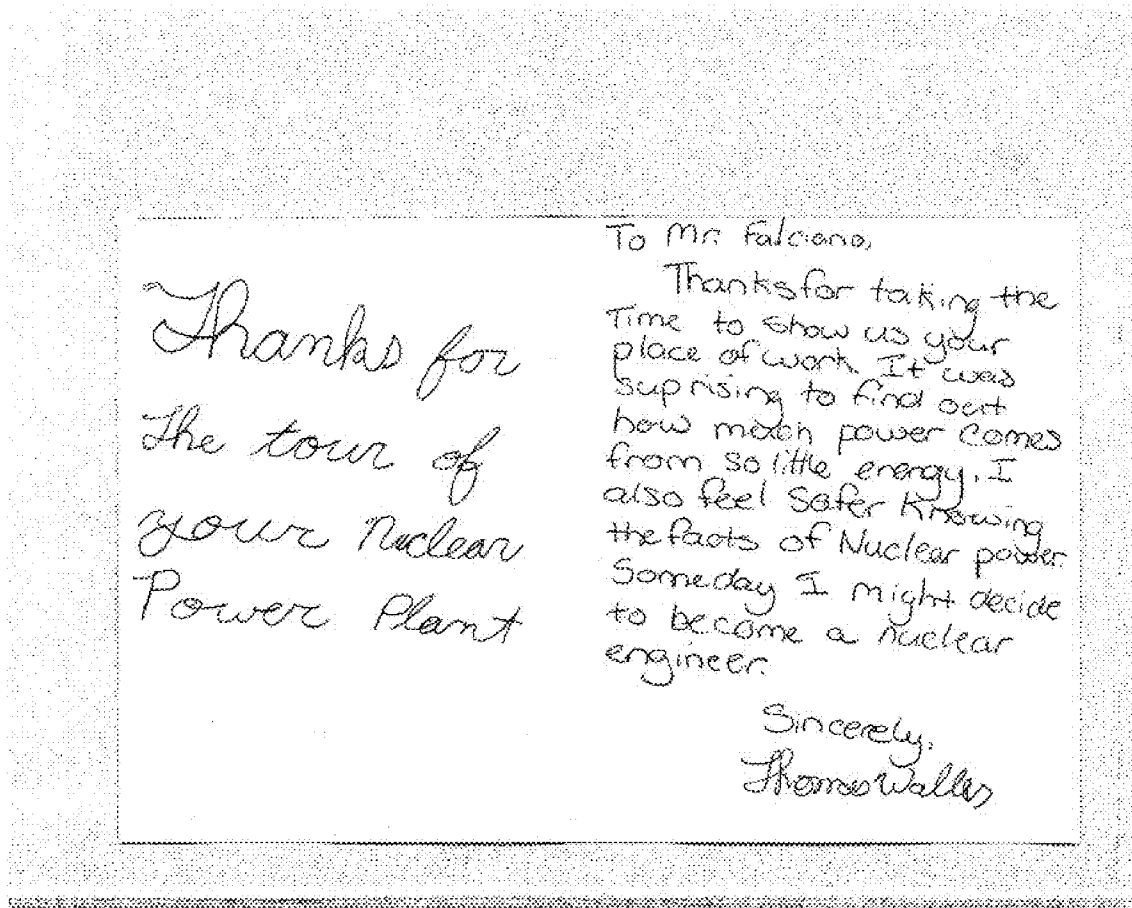 Thanks for
the tour of
your Nuclear
Power Plant
To Mr. Falciano,
Thanks for taking the
Time to show us your
place of work. It was
suprising to find out
how much power comes
from so little energy. I
also feel safer knowing
the facts of Nuclear power.
Someday I might decide
to become a nuclear
engineer.
Sincerely,
Thomas